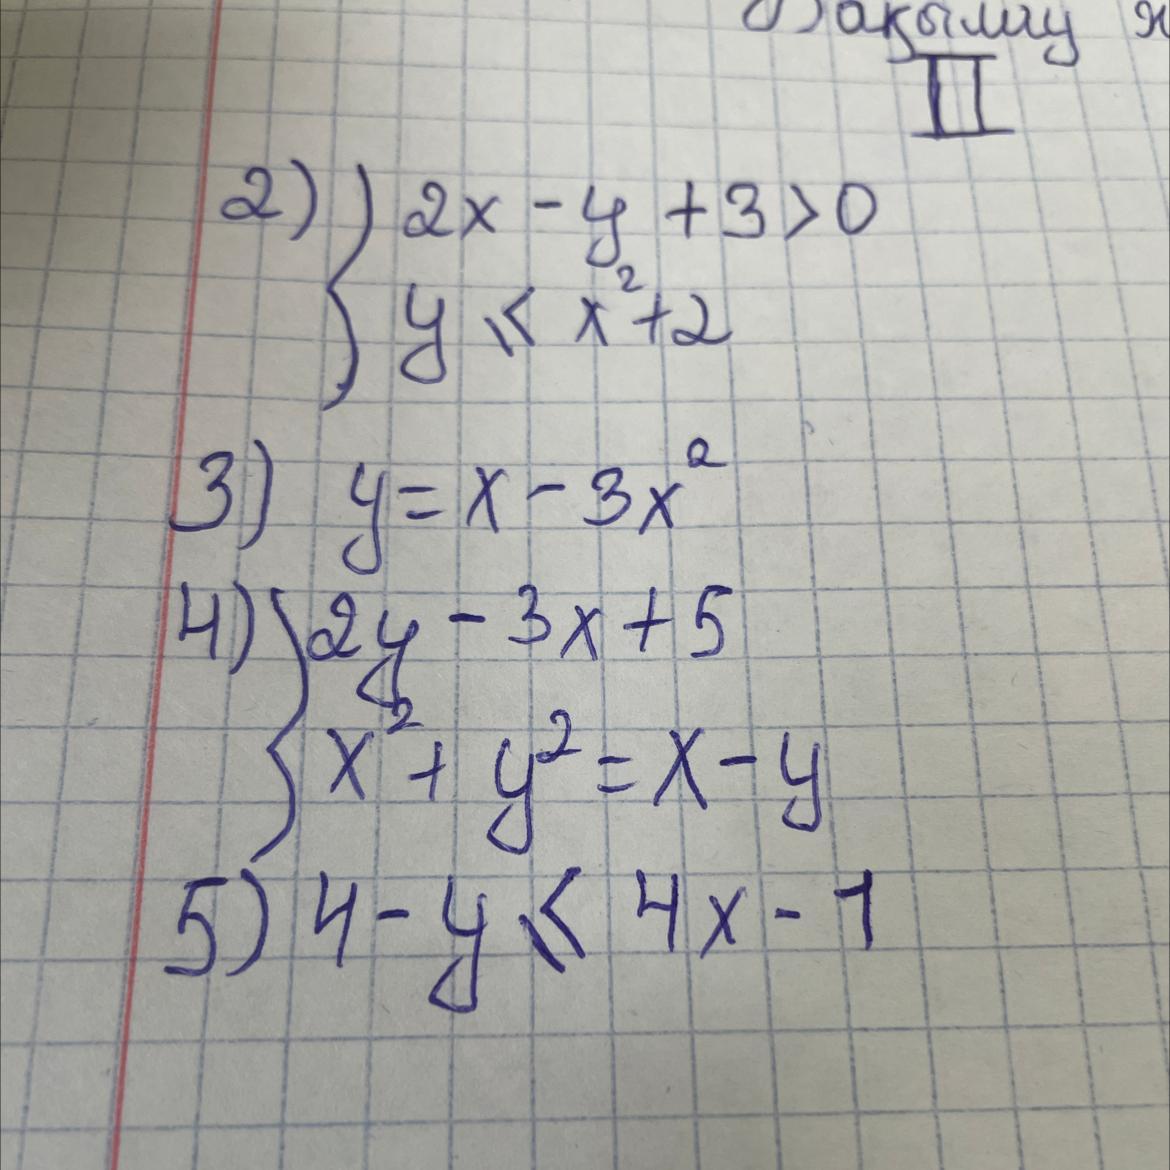 Бақылау
II
2) { 2x - y + 3 > 0
y ⩽ x² + 2
3) y = x - 3x²
4) { 2y - 3x + 5
x² + y² = x - y
5) 4 - y ⩽ 4x - 1